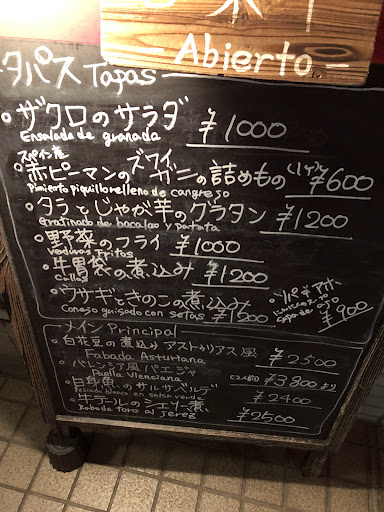 - Abierto -
タパス Tapas
ザクロのサラダ ¥1000
Ensalada de granada
スペイン産 ズワイ
赤ピーマンのガニの詰めもの (1ケ) ¥600
Pimiento piquillo relleno de cangreso
タラとじゃが芋のグラタン ¥1200
Gratinado de bacalao y patata
野菜のフライ ¥1000
verduras fritas
牛胃袋の煮込み ¥1200
Callos
ウサギときのこの煮込み
Conejo guisado con setas ¥1600
¥900
メイン Principal
白花豆の煮込み アストゥリアス風
Fabada Asturiana ¥2500
バレンシア風パエジャ
Paella Vlenciana (2人前) ¥3800より
白身魚のサルサベルデ ¥2400
Pescado blanco en salsa verde
牛テールのシェリー煮
Rabo de toro al Jerez ¥2500